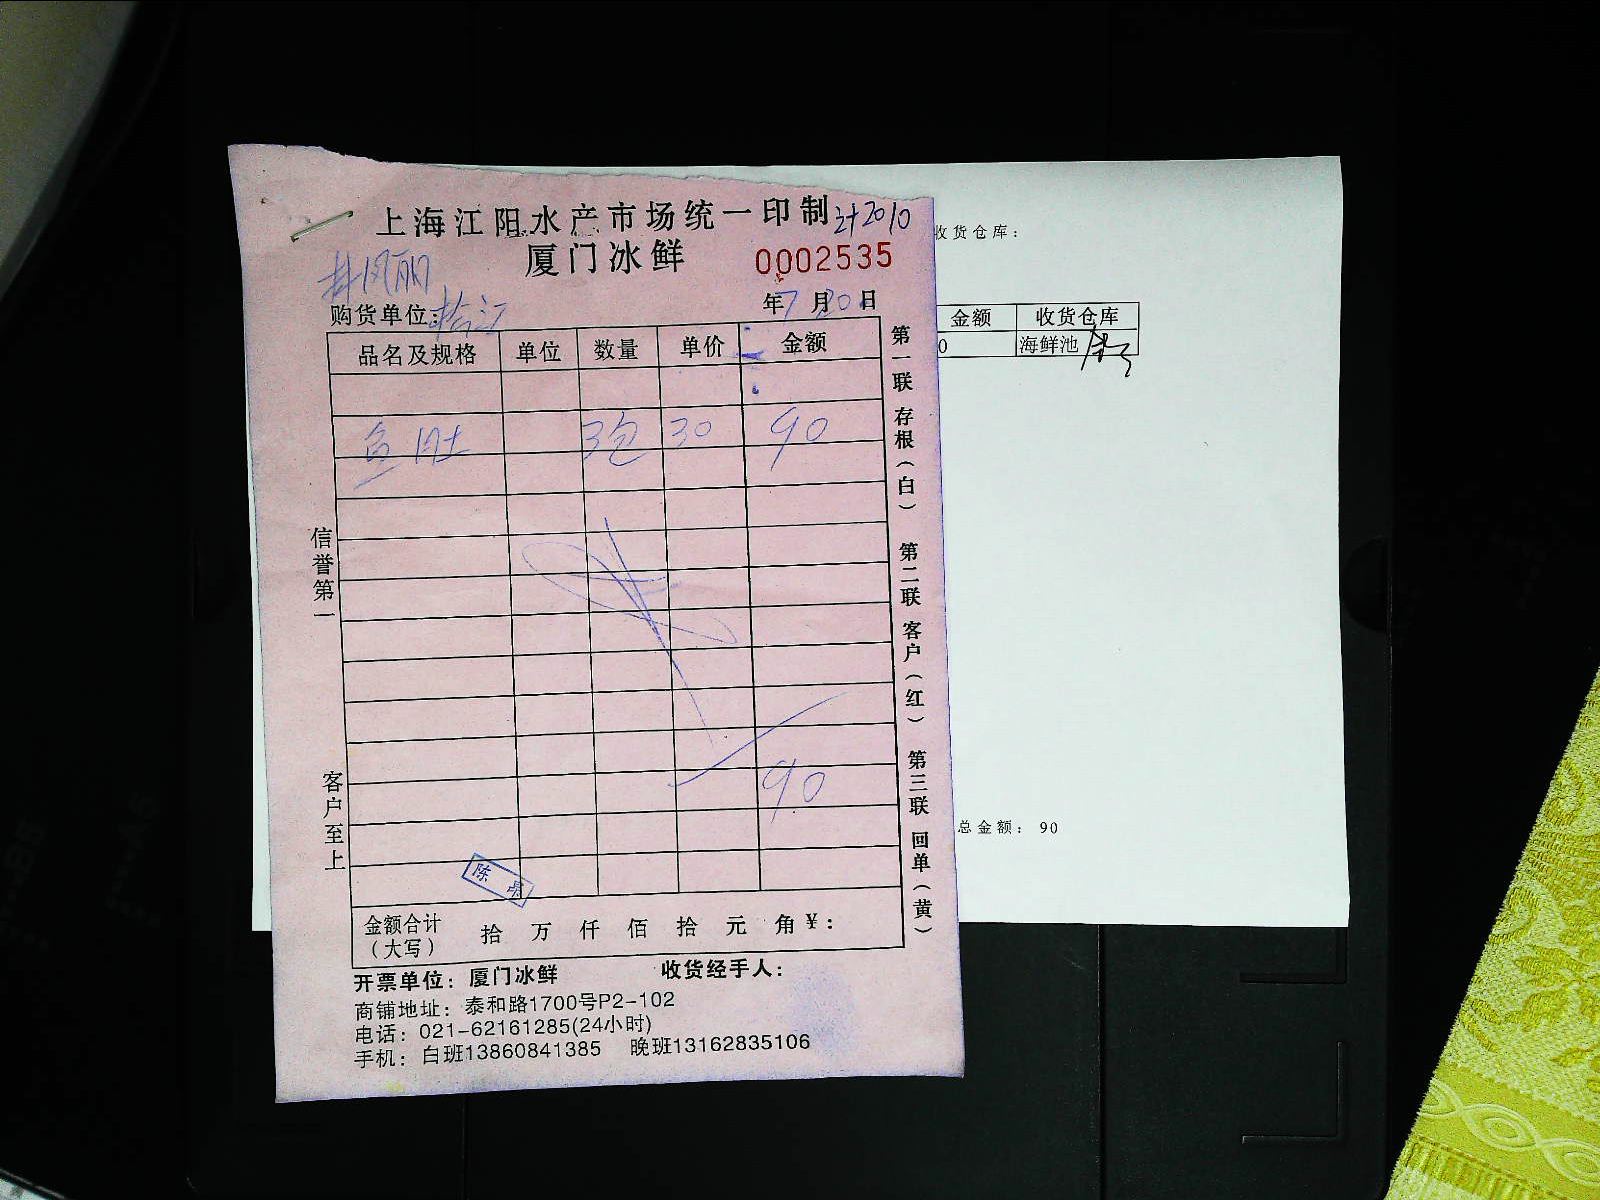 上海江阳水产市场统一印制
厦门冰鲜
0002535
购货单位：松江
年7月20日
品名及规格 单位 数量 单价 金额
鱼肚 3包 30 90
90
金额合计（大写） 拾 万 仟 佰 拾 元 角 ¥：
开票单位：厦门冰鲜 收货经手人：
商铺地址：泰和路1700号P2-102
电话：021-62161285(24小时)
手机：白班13860841385 晚班13162835106
信誉第一
客户至上
第一联 存根（白） 第二联 客户（红） 第三联 回单（黄）
收货仓库：
金额 收货仓库
0 海鲜池
总金额： 90